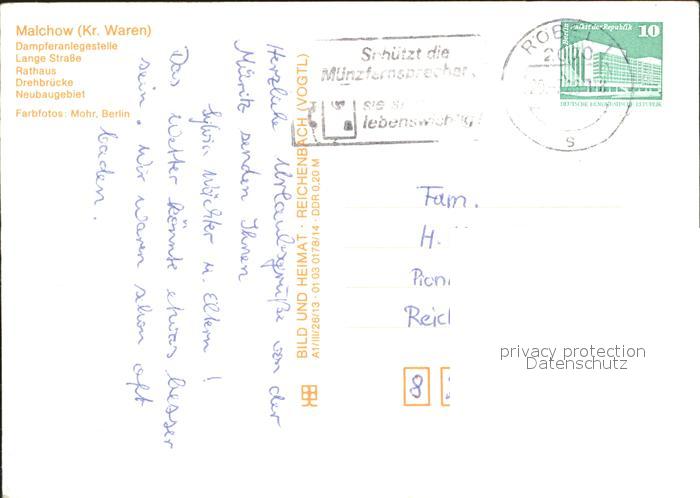 Malchow (Kr. Waren)
Dampferanlegestelle
Lange Straße
Rathaus
Drehbrücke
Neubaugebiet
Farbfotos: Mohr, Berlin
Herzliche Urlaubsgrüße von der
Müritz senden Ihnen
Sylvia Wächter u. Eltern!
Das Wetter könnte etwas besser
sein. Wir waren schon oft
baden.
BILD UND HEIMAT · REICHENBACH (VOGTL)
A1/III/26/13 · 01 03 0178/14 · DDR 0,20 M
Schützt die
Münzfernsprecher
sie si
lebenswichtig!
RÖB
2070
s
Berlin Palast der Republik
10
DEUTSCHE DEMOKRATISCHE REPUBLIK
Fam.
H.
Pion
Reic
8
privacy protection
Datenschutz